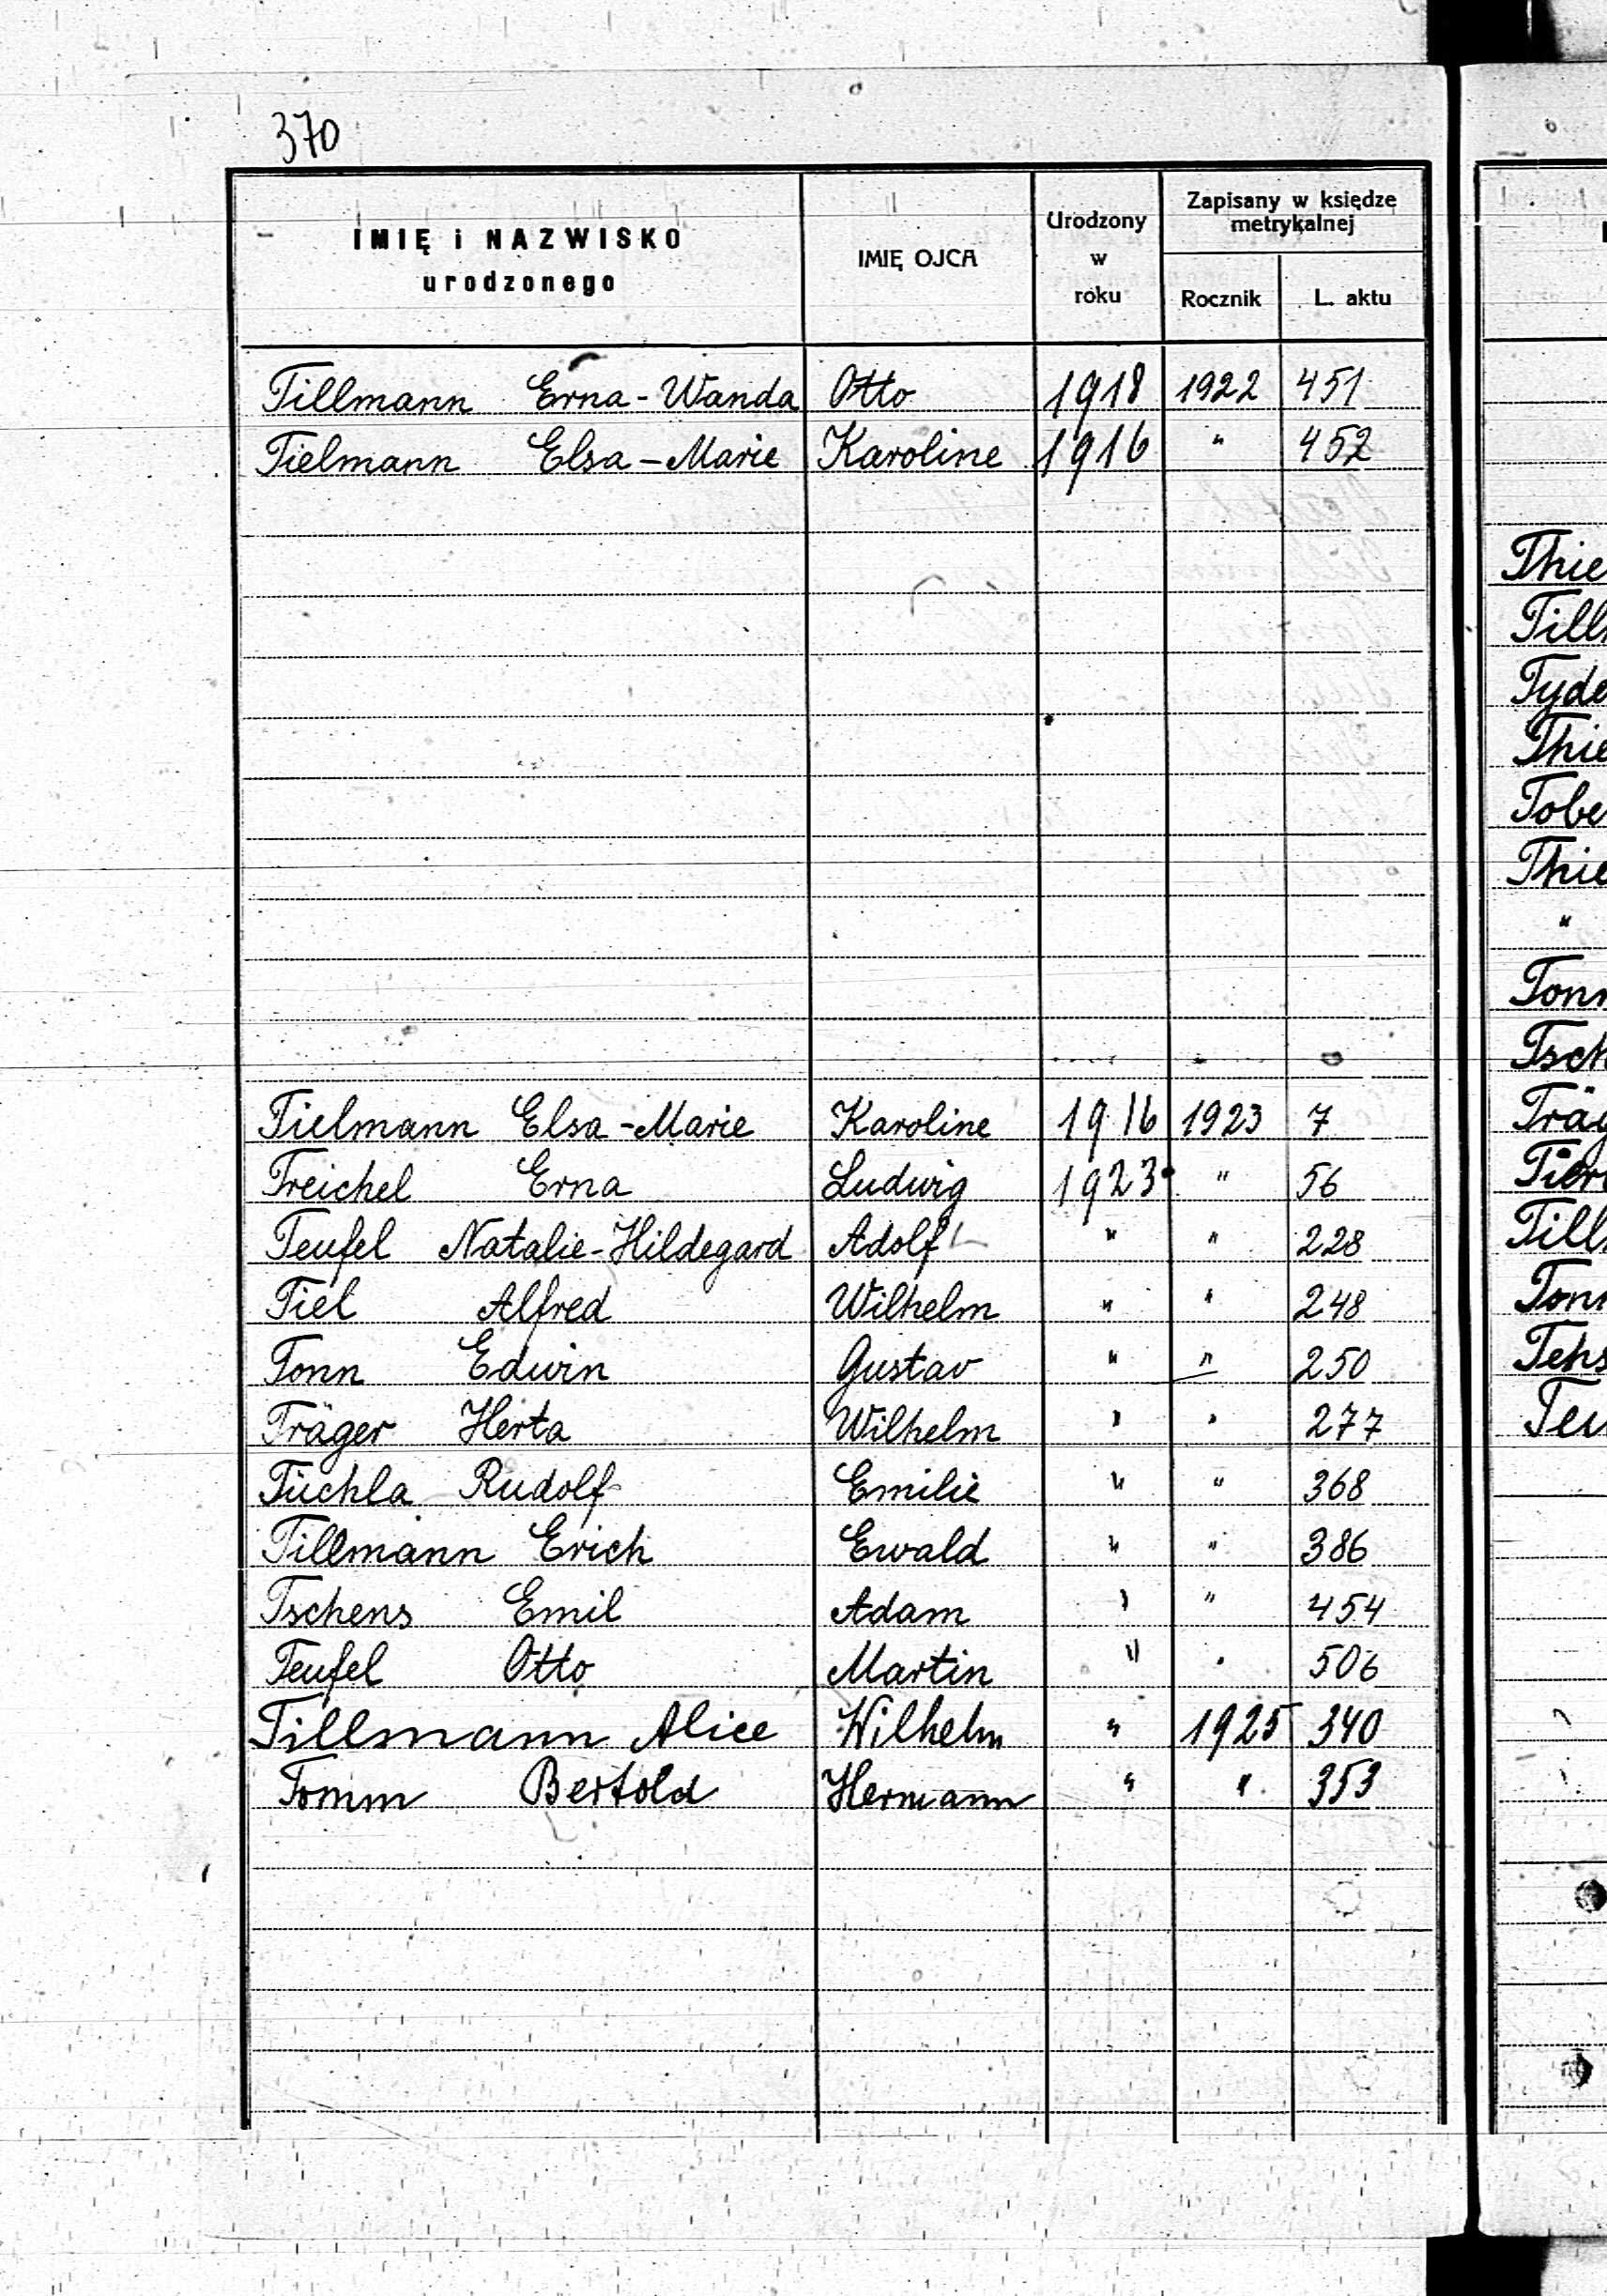 370
IMIĘ i NAZWISKO urodzonego | IMIĘ OJCA | Urodzony w roku | Zapisany w księdze metrykalnej
Rocznik | L. aktu
Tillmann Erna-Wanda | Otto | 1918 | 1922 | 451
Tielmann Elsa-Marie | Karoline | 1916 | " | 452
Tielmann Elsa-Marie | Karoline | 1916 | 1923 | 7
Treichel Erna | Ludwig | 1923 | " | 56
Teufel Natalie-Hildegard | Adolf | " | " | 228
Tiel Alfred | Wilhelm | " | " | 248
Tonn Edwin | Gustav | " | " | 250
Träger Herta | Wilhelm | " | " | 277
Tuchla Rudolf | Emilie | " | " | 368
Tillmann Erich | Ewald | " | " | 386
Tschens Emil | Adam | " | " | 454
Teufel Otto | Martin | " | " | 506
Tillmann Alice | Wilhelm | " | 1925 | 340
Tomm Bertold | Hermann | " | " | 353
Thie
Till
Tyde
Thie
Tobe
Thie
"
Ton
Tsch
Träg
Till
Ton